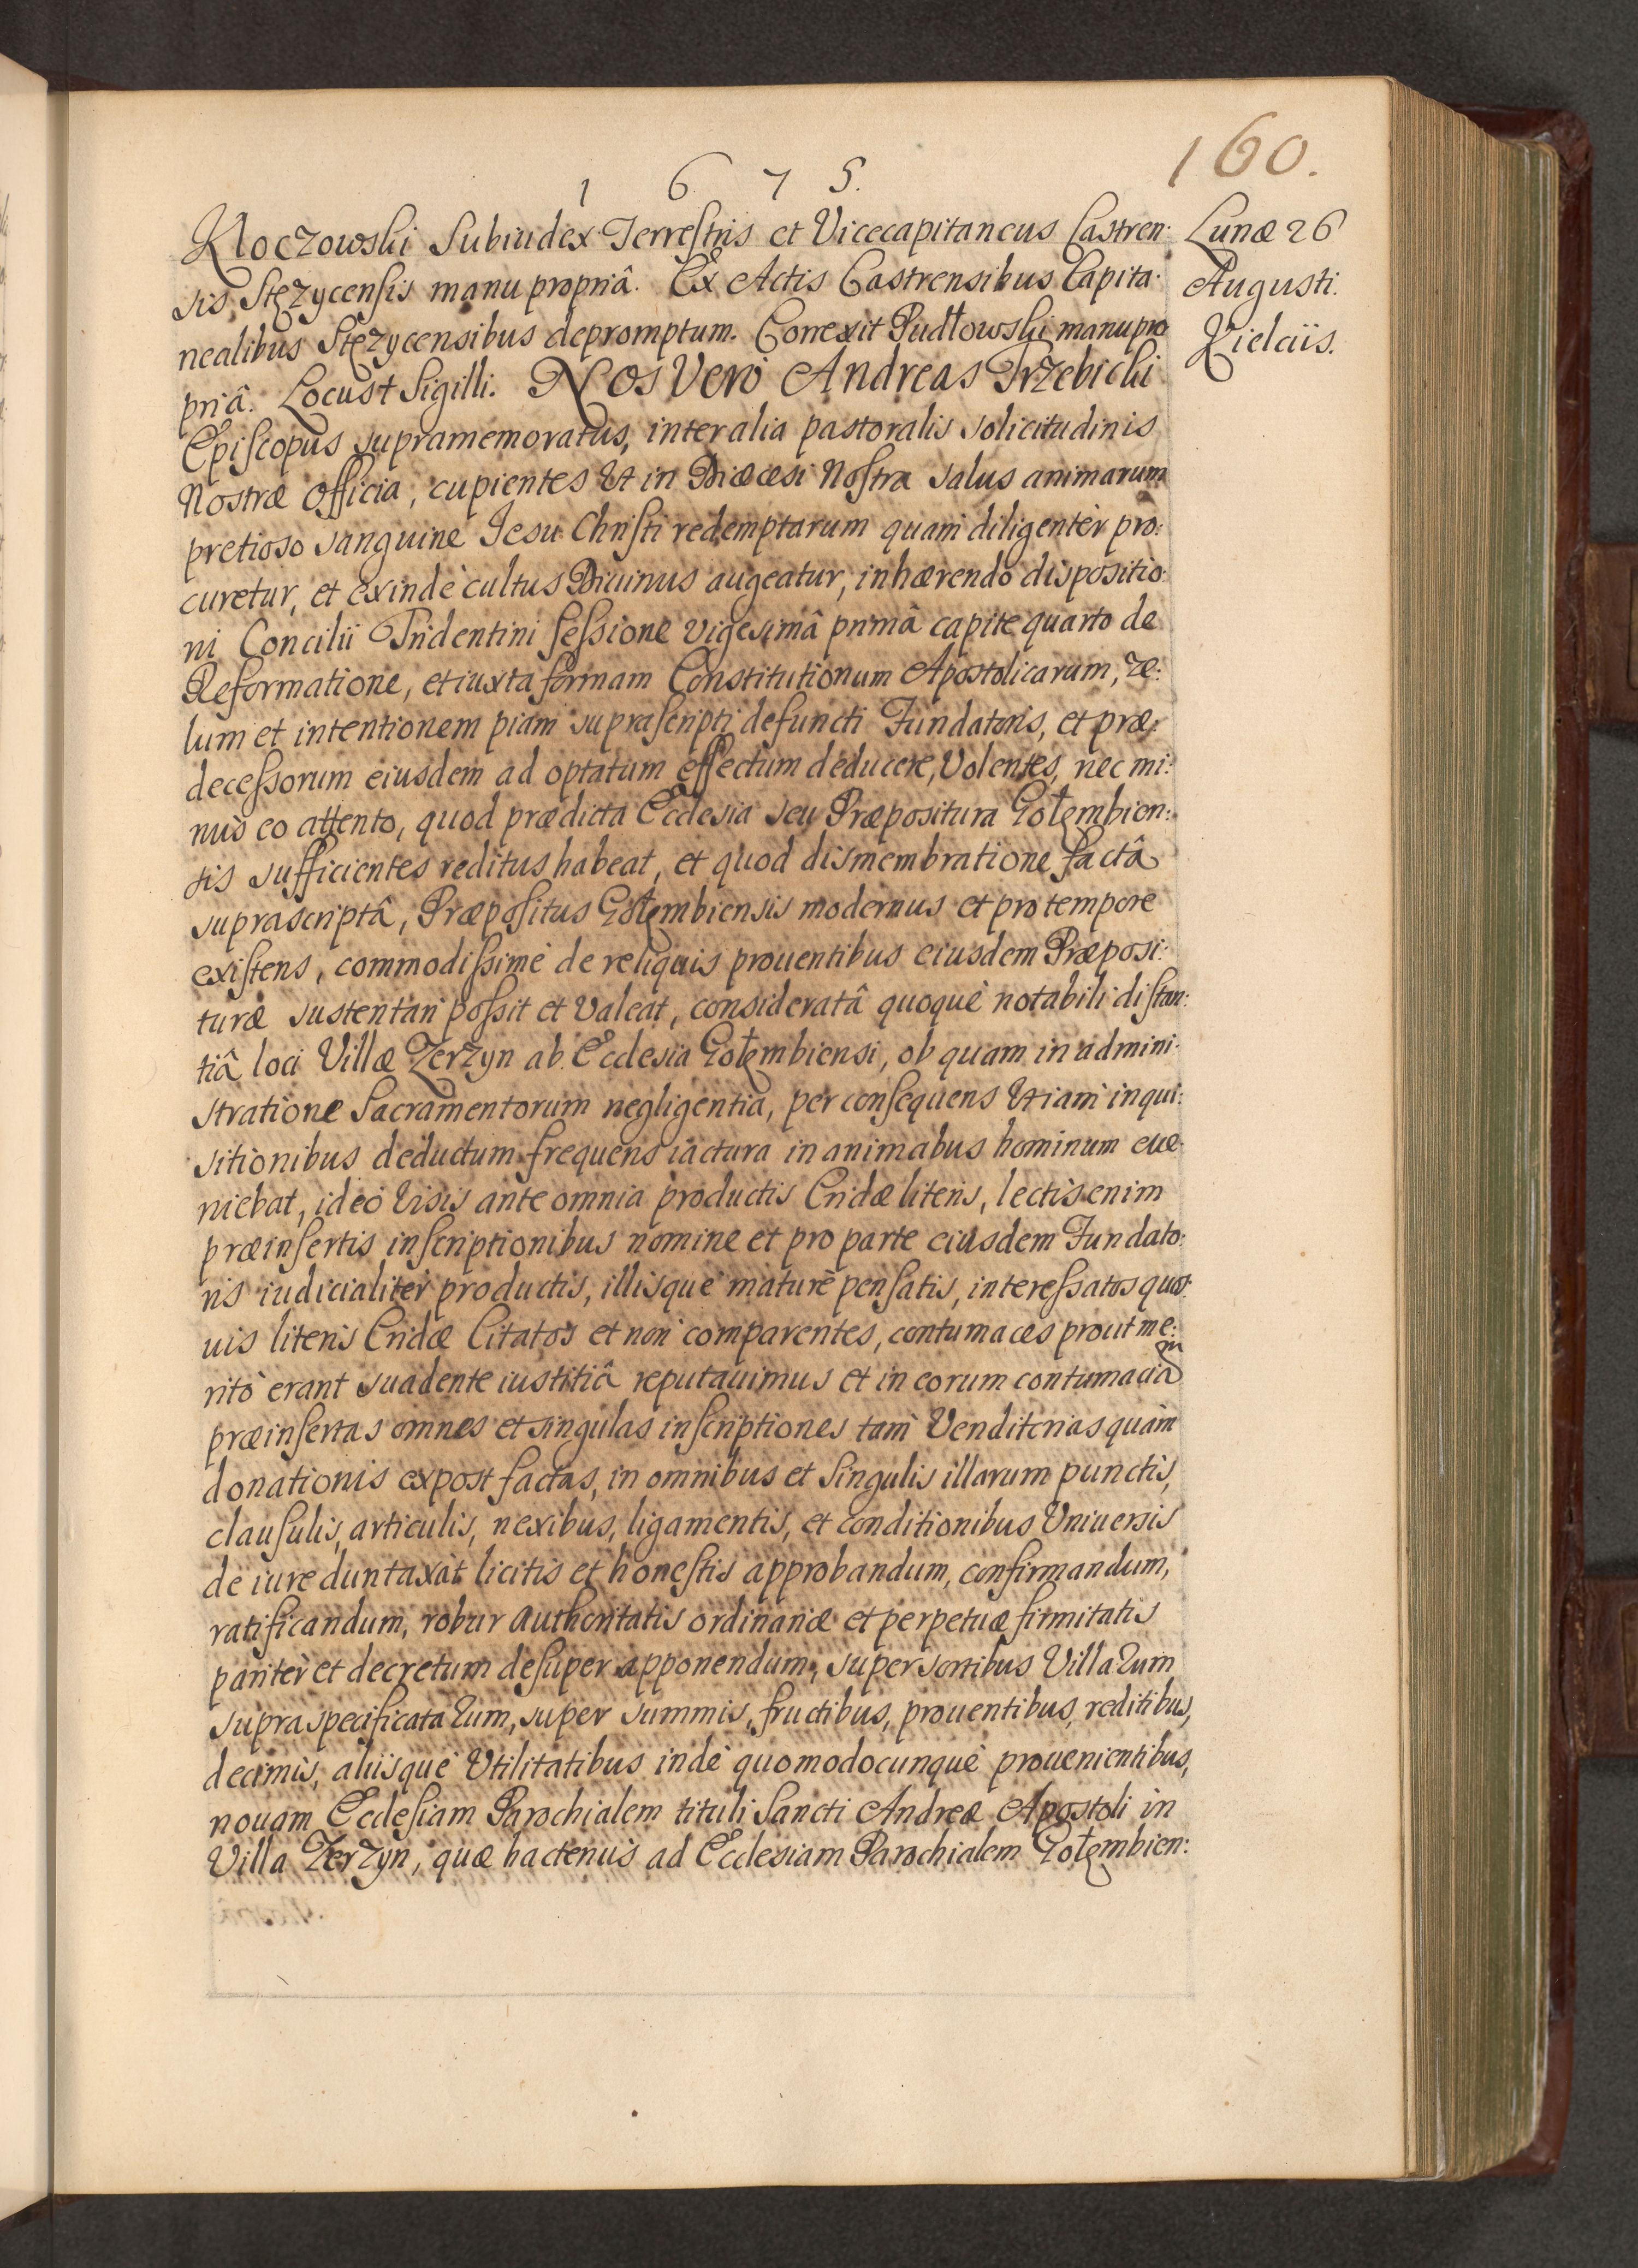 160.
1 6 7 5.
Kłoczowski Subiudex Terrestris et Vicecapitaneus Castren:
sis Stęzycensis manu propriâ. Ex Actis Castrensibus Capita:
nealibus Stęzycensibus depromptum. Correxit Pudłowski manu pro
priâ. Locus + Sigilli. Nos Verò Andreas Trzebicki
Episcopus supramemoratus, inter alia pastoralis solicitudinis
Nostræ officia, cupientes Ut in Diæcesi Nostra salus animarum
pretioso sanguine Iesu Christi redemptarum quam diligentèr pro:
curetur, et exindè cultus Diuinus augeatur, inhærendo dispositio:
ni Concilii Tridentini sessione vigesimâ primâ capite quarto de
Reformatione, et iuxta formam Constitutionum Apostolicarum, ze:
lum et intentionem piam suprascripti defuncti Fundatoris, et præ:
decessorum eiusdem ad optatum effectum deducere, Volentes, nec mi:
nus eo attento, quod prædicta Ecclesia seu Præpositura Gołembien:
sis sufficientes reditus habeat, et quod dismembratione factâ
suprascriptâ, Præpositus Gołembiensis modernus et pro tempore
existens, commodissimè de reliquis prouentibus eiusdem Præposi:
turæ sustentari possit et Valeat, consideratâ quoquè notabili distan:
tiâ loci Villæ Zerzyn ab Ecclesia Gołembiensi, ob quam in admini:
stratione Sacramentorum negligentia, per consequens Etiam inqui:
sitionibus deductum frequens iactura in animabus hominum eue:
niebat, ideò Visis ante omnia productis Cridæ literis, lectis enim
præinsertis inscriptionibus nomine et pro parte eiusdem Fundato:
ris iudicialiter productis, illisque maturè pensatis, interessatos quos:
uis literis Cridæ Citatos et non comparentes, contumaces prout me:
ritò erant suadente iustitiâ reputauimus et in eorum contumaciam
præinsertas omnes et singulas inscriptiones tam Venditorias quàm
donationis expost factas, in omnibus et Singulis illarum punctis,
clausulis, articulis, nexibus, ligamentis, et conditionibus Uniuersis
de iure duntaxat licitis et honestis approbandum, confirmandum,
ratificandum, robur authoritatis ordinariæ et perpetuæ firmitatis
paritèr et decretum desuper apponendum, super sortibus Villarum
supraspecificatarum, super summis, fructibus, prouentibus, reditibus,
decimis, aliisque Utilitatibus indè quomodocunquè prouenientibus,
nouam Ecclesiam Parochialem tituli Sancti Andreæ Apostoli in
Villa Zerzyn, quæ hactenus ad Ecclesiam Parochialem Gołembien:
Lunæ 26
Augusti.
Kielciis.